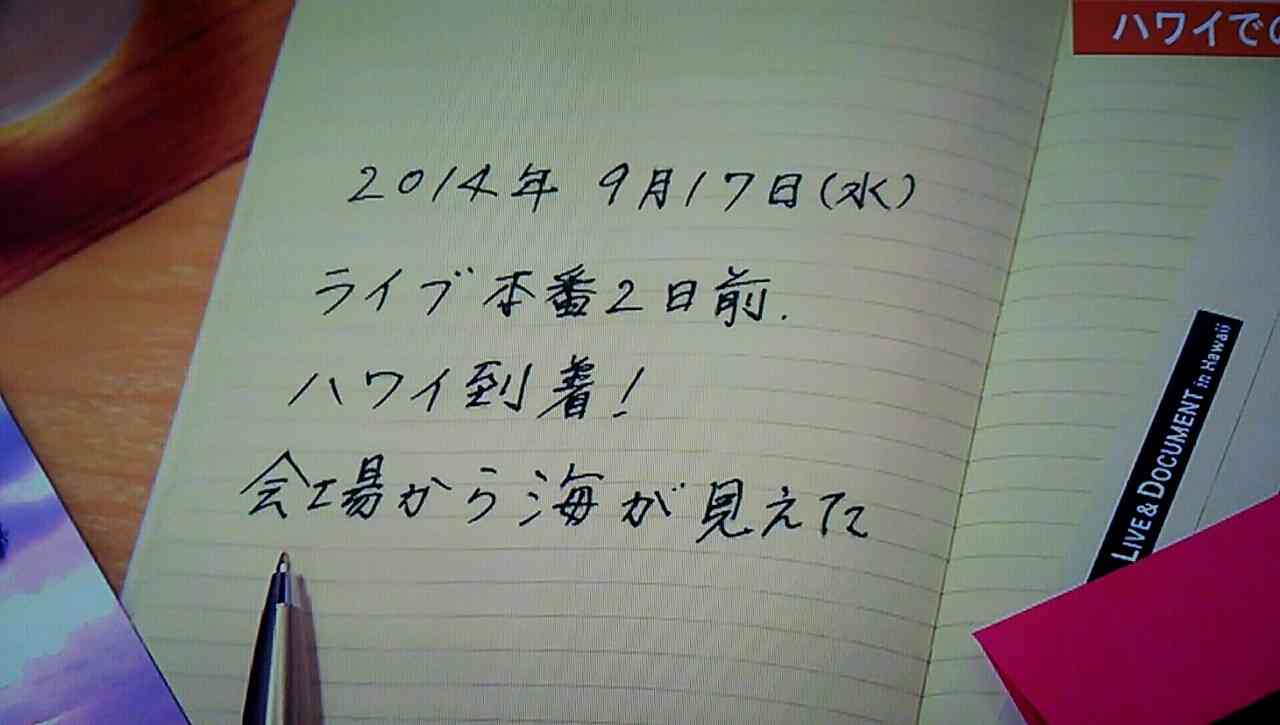 ハワイでの
2014年 9月17日(水)
ライブ本番2日前.
ハワイ到着!
会場から海が見えた
LIVE & DOCUMENT in Hawaii